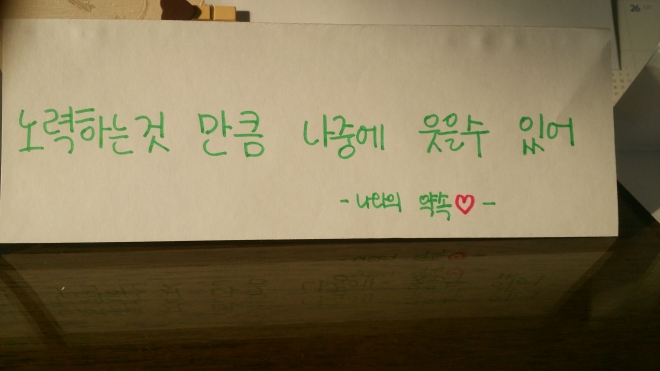 노력하는것 만큼 나중에 웃을수 있어
-나와의 약속♡-
26